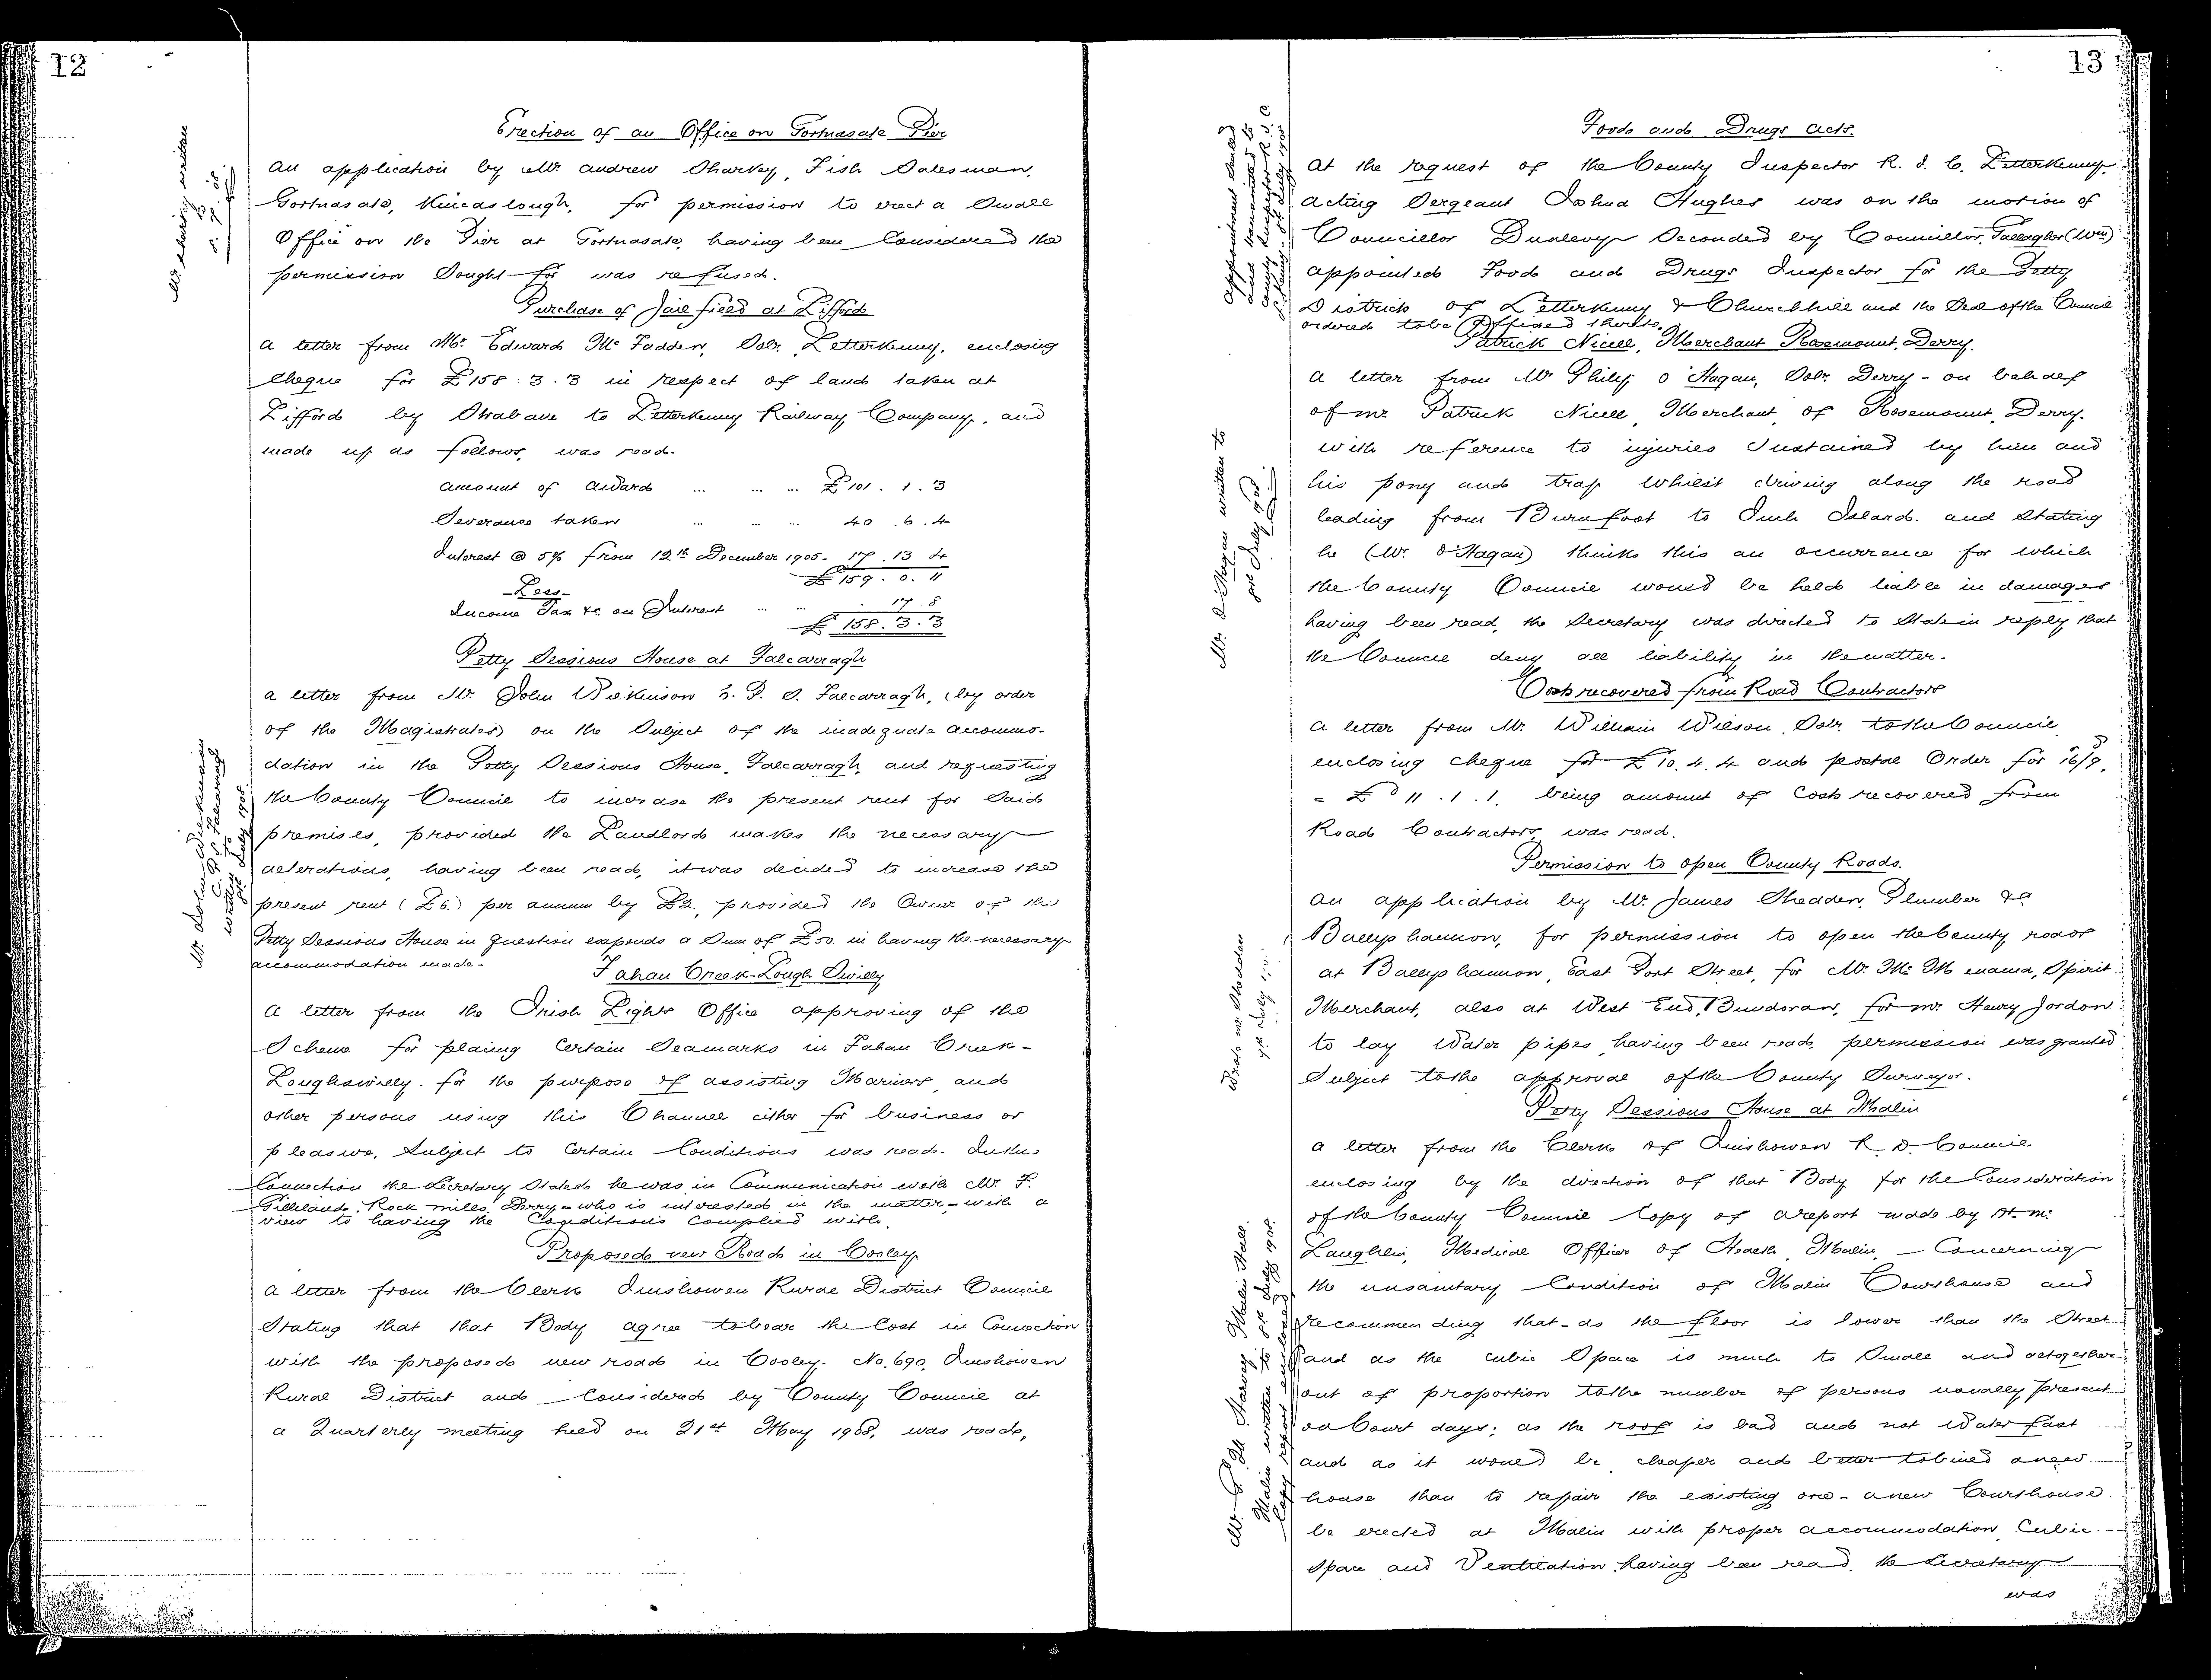 12
Erection of an Office on Gortnasate Pier
An application by Mr. Andrew Sharkey, Fish Salesman,
Gortnasate, Kincaslough, for permission to erect a Small
Office on the Pier at Gortnasate, having been Considered the
permission Sought for was refused.
Purchase of Jail field at Lifford
A letter from Mr. Edward McFadden, Solr. Letterkenny, enclosing
Cheque for £158. 3. 3 in respect of land taken at
Lifford by Strabane to Letterkenny Railway Company, and
made up as follows, was read.
Amount of Award ... ... ... £101. 1. 3
Severance taken ... ... ... 40. 6. 4
Interest @ 5% from 12th December 1905 - 17. 13 4
£159. 0. 11
-Less-
Income Tax &c on Interest ... ... 17. 8
£ 158. 3. 3
Petty Sessions House at Falcarragh
A letter from Mr. John Wilkinson C. P. S. Falcarragh, (by order
of the Magistrates) on the Subject of the inadequate accommo-
dation in the Petty Sessions House, Falcarragh, and requesting
the County Council to increase the present rent for Said
premises, provided the Landlord makes the necessary
alterations, having been read, it was decided to increase the
present rent (£6.) per annum by £2, provided the Owner of the
Petty Sessions House in question expends a Sum of £50. in having the necessary
accommodation made.
Fahan Creek - Lough Swilly
A letter from the Irish Lights Office approving of the
Scheme for placing Certain Seamarks in Fahan Creek -
Loughswilly. for the purpose of assisting Mariners and
other persons using this Channel either for business or
pleasure, Subject to Certain Conditions was read. In this
Connection the Secretary Stated he was in Communication with Mr. F.
Gilliland, Rock mills, Derry - who is interested in the matter - with a
view to having the Conditions Complied with.
Proposed new Road in Cooley
A letter from the Clerk Inishowen Rural District Council
Stating that that Body agree to bear the Cost in Connection
with the proposed new road in Cooley. No. 690, Inishowen
Rural District and Considered by County Council at
a Quarterly meeting held on 21st May 1908, was read,
13
Food and Drugs Acts.
At the request of the County Inspector R. I. C. Letterkenny,
Acting Sergeant Joshua Hughes was on the motion of
Councillor Dunlevy Seconded by Councillor Gallagher (Wm)
appointed Food and Drugs Inspector for the Petty
Districts of Letterkenny & Churchhill and the Seal of the Council
ordered to be Affixed thereto.
Patrick Nicell, Merchant Rosemount, Derry.
A letter from Mr Philip O'Hagan, Solr. Derry - on behalf
of Mr Patrick Nicell, Merchant, of Rosemount, Derry.
with reference to injuries Sustained by him and
his pony and trap whilst driving along the road
leading from Burnfoot to Inch Island. and Stating
he (Mr. O'Hagan) thinks this an occurrence for which
the County Council would be held liable in damages
having been read, the Secretary was directed to State in reply that
the Council deny all liability in the matter.
Costs recovered from Road Contractors
A letter from Mr. William Wilson, Solr. to the Council,
enclosing cheque for £10. 4. 4 and postal Order for 16/9,
= £11. 1. 1, being amount of Costs recovered from
Road Contractors, was read.
Permission to open County Roads.
An application by Mr. James Shedden, Plumber &c
Ballyshannon, for permission to open the County roads
at Ballyshannon, East Port Street, for Mr. McMenamin, Spirit
Merchant, also at West End, Bundoran, for Mr. Henry Jordon
to lay Water pipes, having been read, permission was granted
Subject to the approval of the County Surveyor.
Petty Sessions House at Malin
A letter from the Clerk of Inishowen R. D. Council
enclosing by the direction of that Body for the Consideration
of the County Council Copy of a report made by Dr. M.
Laughlin, Medical Officer of Health, Malin, - Concerning
the unsanitary Condition of Malin Courthouse and
recommending that - as the floor is lower than the Street
and as the cubic Space is much to Small and altogether
out of proportion to the number of persons usually present
on Court days; as the roof is bad and not Water fast
and as it would be cheaper and better to build a new
house than to repair the existing one - a new Courthouse
be erected at Malin with proper accommodation, Cubic
Space and Ventilation, having been read, the Secretary
was
Mr. O'Hagan written to
Wrote Mr Shedden
9th July 1908